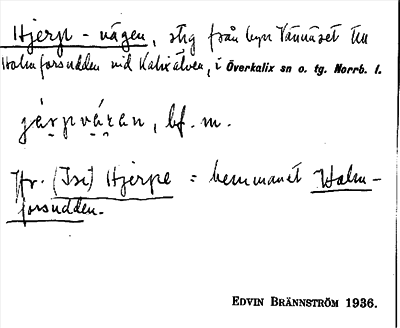 Hjerp-vägen, stig från byn Vännäset till
Holmforsudden vid Kalixälven, i Överkalix sn o. tg. Norrb. l.
járpvá̱ran, bf. m.
Jfr. (Isi) Hjerpe = hemmanet Holm-
forsudden.
EDVIN BRÄNNSTRÖM 1936.